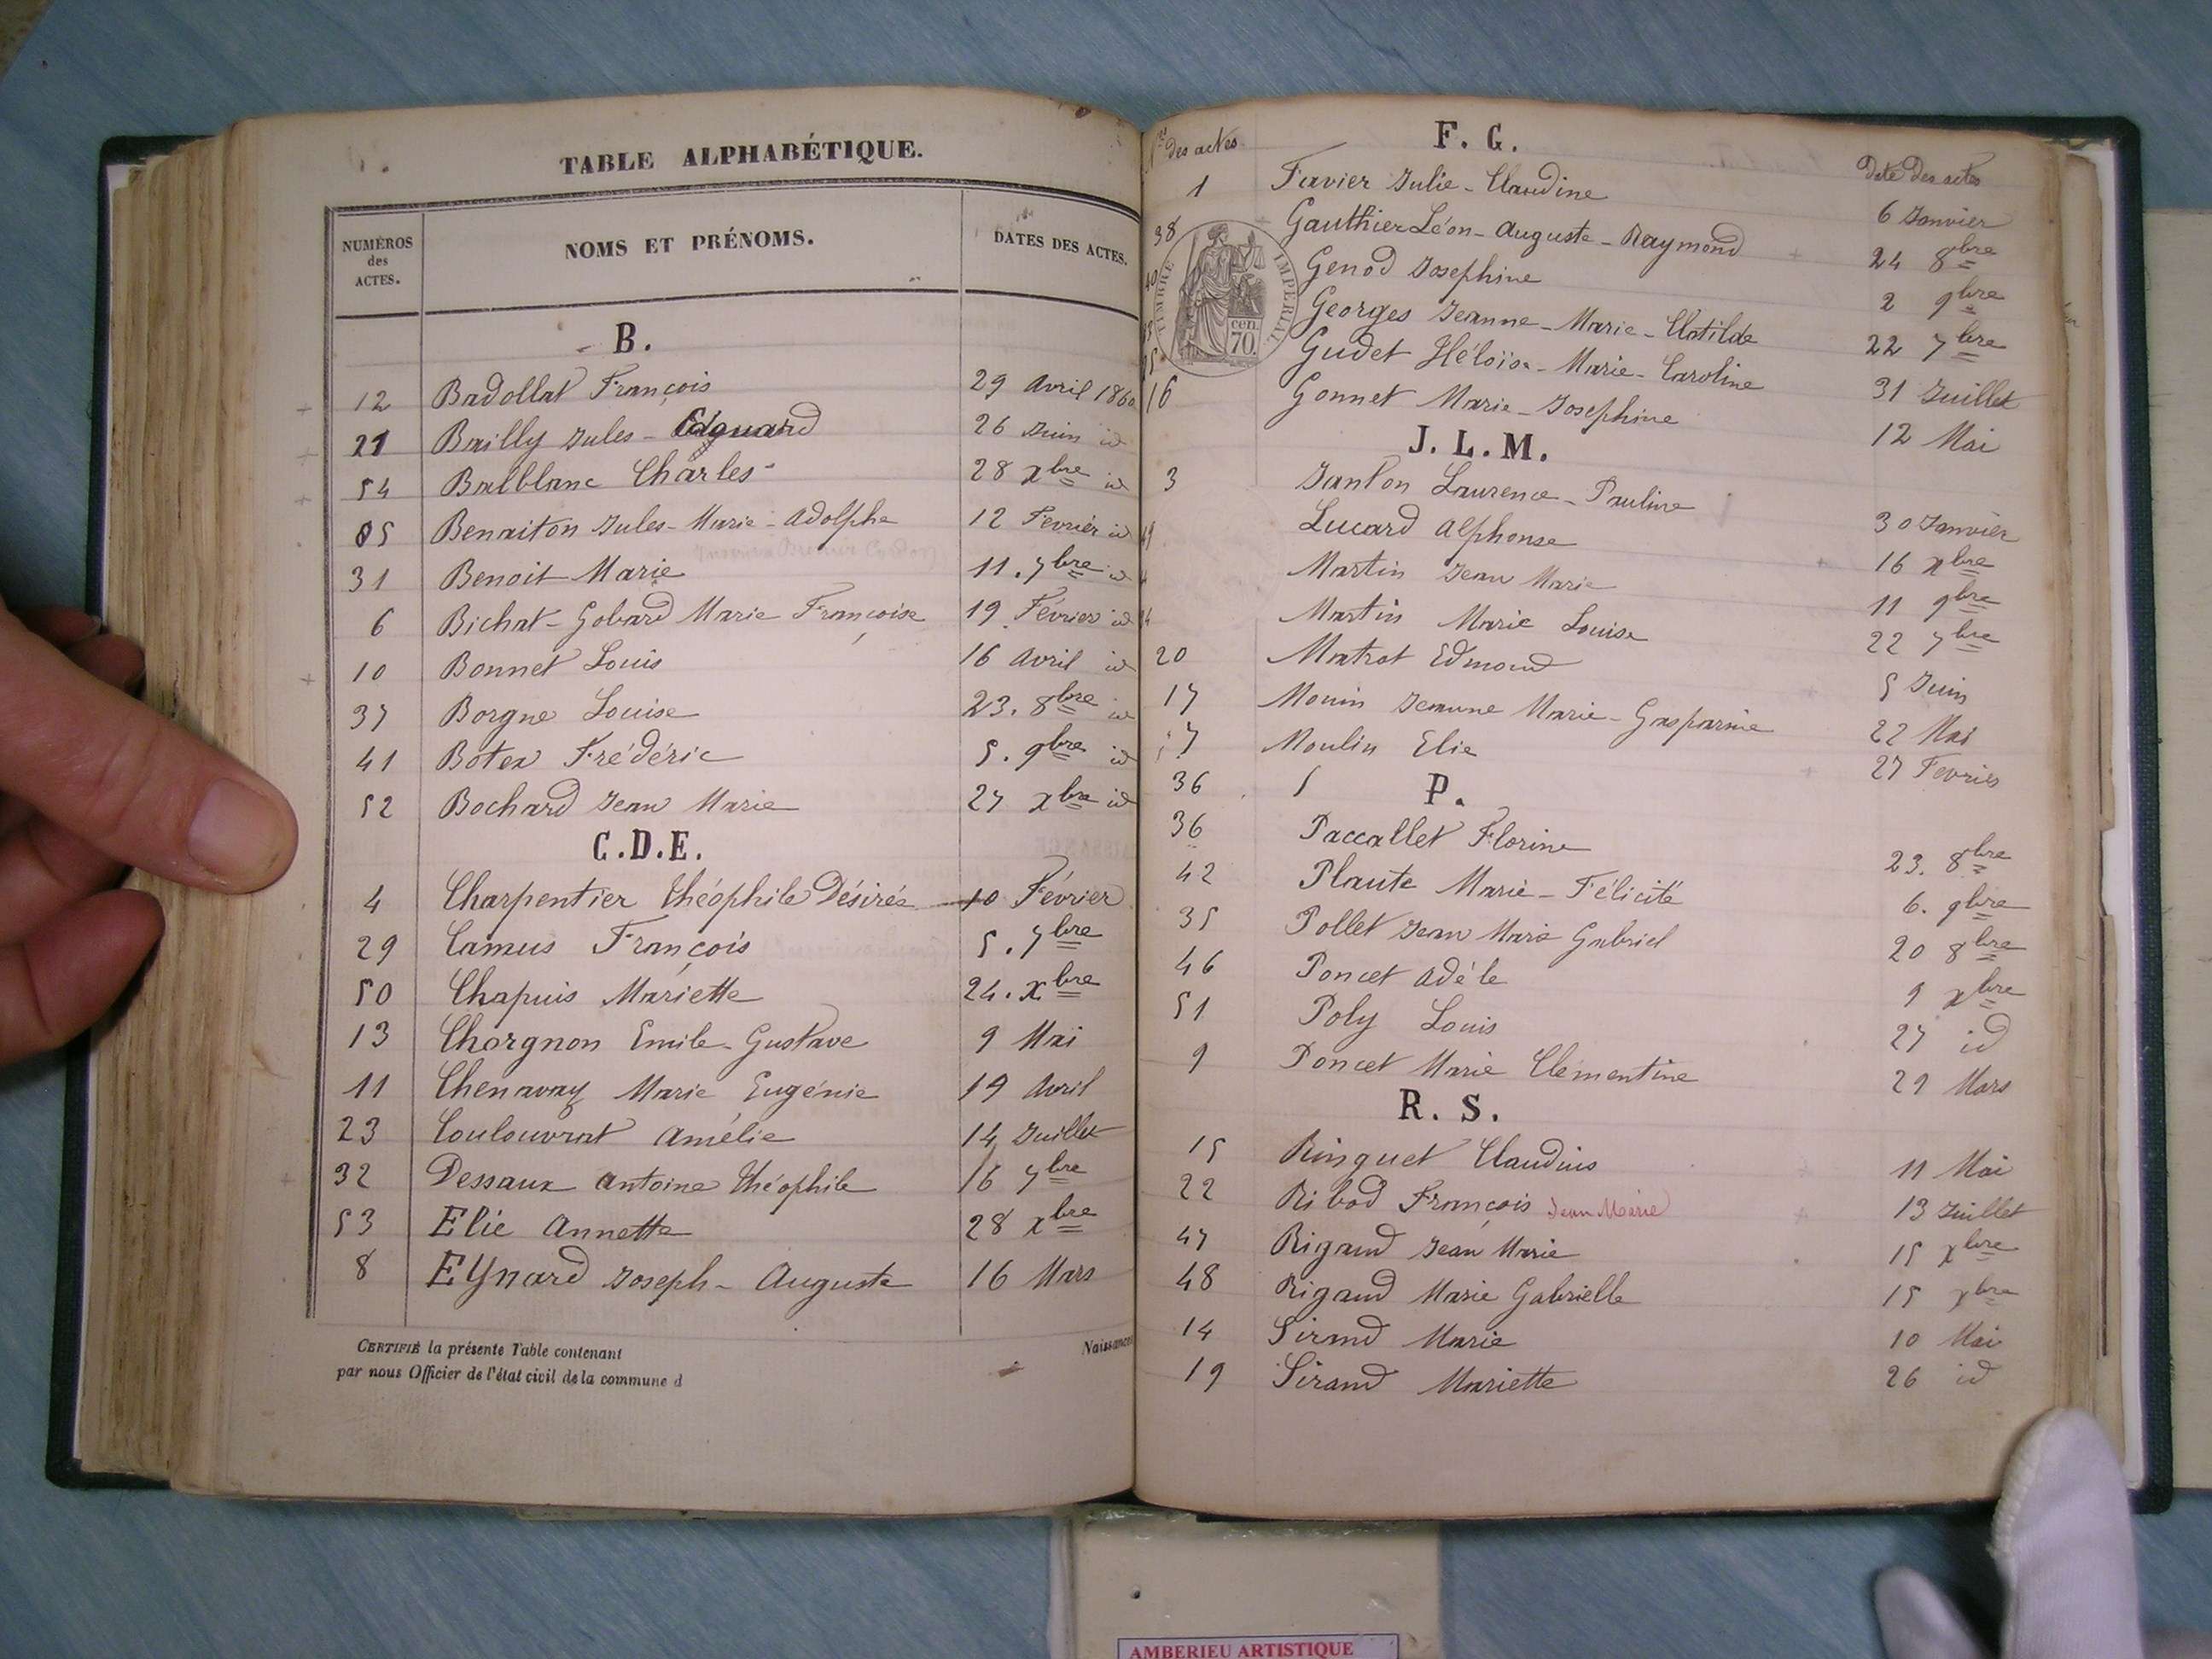 TABLE ALPHABÉTIQUE.
NUMÉROS des ACTES. NOMS ET PRÉNOMS. DATES DES ACTES.
B.
12 Badollat François 29 Avril 1860
21 Bailly Jules - Edouard 26 Juin id
54 Balblanc Charles 28 xbre id
05 Benaiton Jules - Marie - Adolphe 12 Fevrier id
31 Benoit Marie 11. 7bre id
6 Bichat - Gobard Marie Françoise 19 Février id
10 Bonnet Louis 16 Avril id
37 Borgne Louise 23. 8bre id
41 Botex Frédéric 5. 9bre id
52 Bochard Jean Marie 27 xbre id
C.D.E.
4 Charpentier Théophile Désirée 10 Février
29 Camus François 5. 7bre
50 Chapuis Mariette 24. xbre
13 Chorgnon Emile - Gustave 9 Mai
11 Chenavay Marie Eugénie 19 Avril
23 Coulouvrat Amélie 14 Juillet
32 Dessaux Antoine Théophile 16 7bre
53 Elie Annette 28 xbre
8 EYnard Joseph - Auguste 16 Mars
CERTIFIÉ la présente Table contenant Naissances
par nous Officier de l'état civil de la commune d
Nos des actes F. G. Date des actes
1 Favier Julie - Claudine 6 Janvier
38 Gauthier Léon - Auguste - Raymond 24 8bre
Genod Josephine 2 9bre
Georges Jeanne - Marie - Clotilde 22 7bre
Gudet Héloïse - Marie - Caroline 31 Juillet
16 Gonnet Marie - Josephine 12 Mai
TIMBRE IMPERIAL
70. cen.
J. L. M.
3 Janton Laurence - Pauline 30 Janvier
49 Lucard Alphonse 16 xbre
Martin Jean Marie 11 9bre
Martin Marie Louise 22 7bre
20 Matrat Edmond 5 Juin
17 Monin Jeanne Marie - Gasparine 22 Mai
7 Moulin Elie 27 Fevrier
36 P.
36 Paccallet Florine 23. 8bre
42 Plante Marie - Félicité 6. 9bre
35 Pollet Jean Marie Gabriel 20 8bre
46 Poncet Adèle 9 xbre
51 Poly Louis 27 id
9 Poncet Marie Clémentine 29 Mars
R. S.
15 Rinquet Claudius 11 Mai
22 Ribod François Jean Marie 13 Juillet
47 Rigaud Jean Marie 15 xbre
48 Rigaud Marie Gabrielle 15 xbre
14 Sirand Marie 10 Mai
19 Sirand Mariette 26 id
AMBERIEU ARTISTIQUE